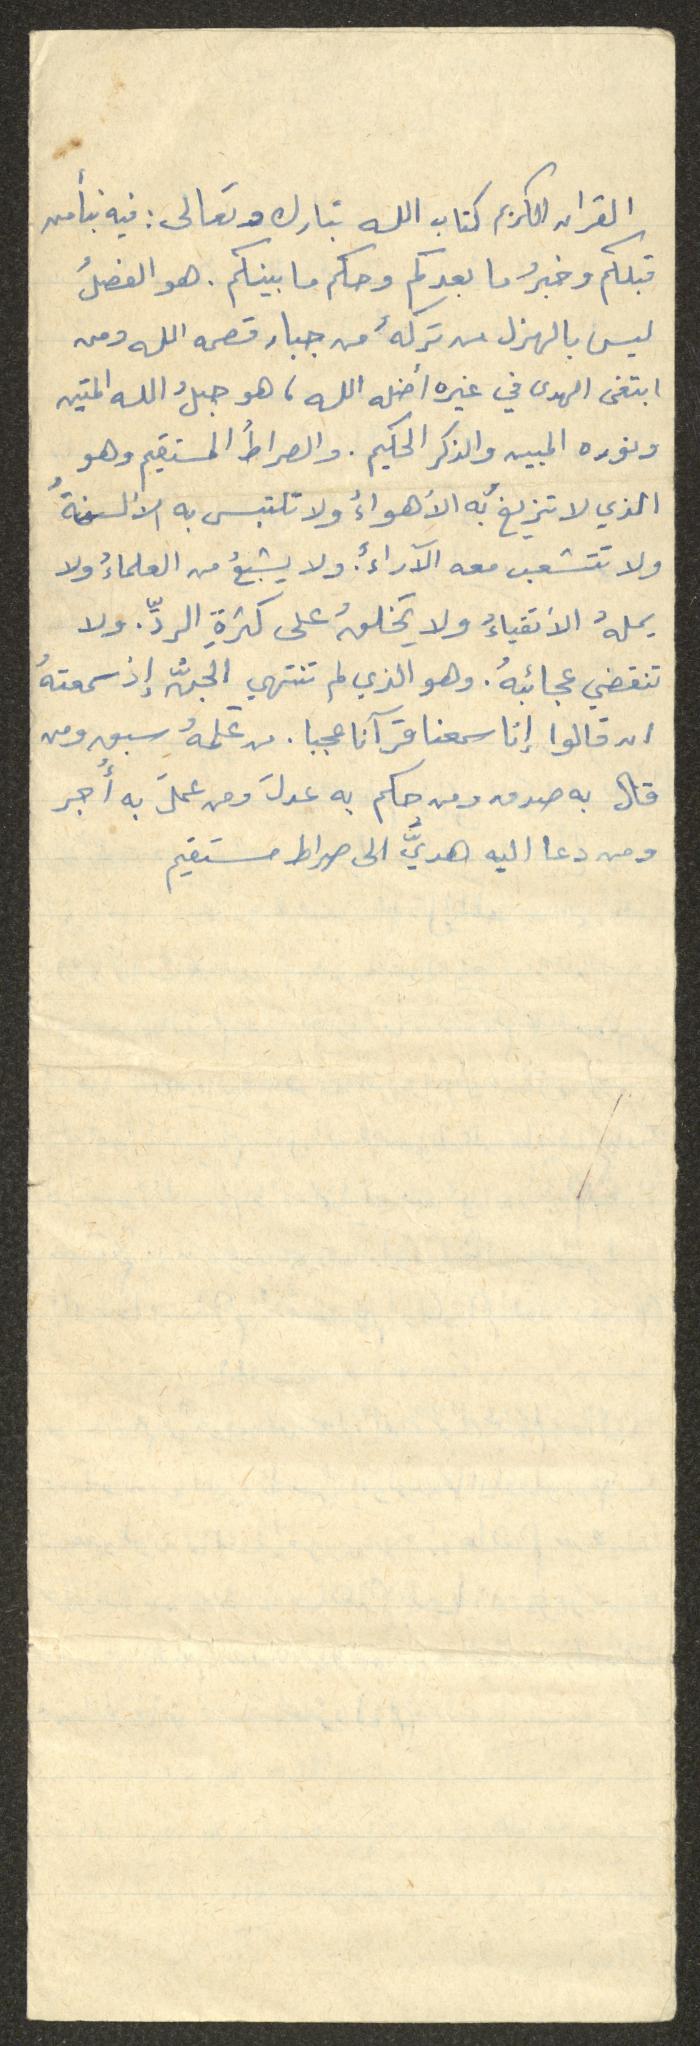 القران الكريم كتاب الله تبارك وتعالى : فيه نبأ من
قبلكم وخبرُ ما بعدكم وحكم ما بينكم . هو الفصلُ
ليس بالهزل من تركهُ من جبار قصمه الله ومن
ابتغى الهدى في غيره أضله الله ، هو حبلُ الله المتين
ونوره المبين والذكر الحكيم . والصراطُ المستقيم وهو
الذي لا تزيغُ به الأهواءُ ولا تلتبس به الألسنةُ
ولا تتشعب معه الآراءُ . ولا يشبعُ من العلماءُ ولا
يملهُ الأتقياءُ ولا يَخلقُ على كثرةِ الردِّ . ولا
تنقضي عجائبهُ . وهو الذي لم تنتهي الجنُّ إذ سمعتهُ
ان قالوا إنا سمعنا قرآنا عجبا . من عَلمهُ سبق ومن
قال به صدق ومن حكم به عدلَ ومن عملَ به أُجر
ومن دعا اليه هديَّ الى صراط مستقيم